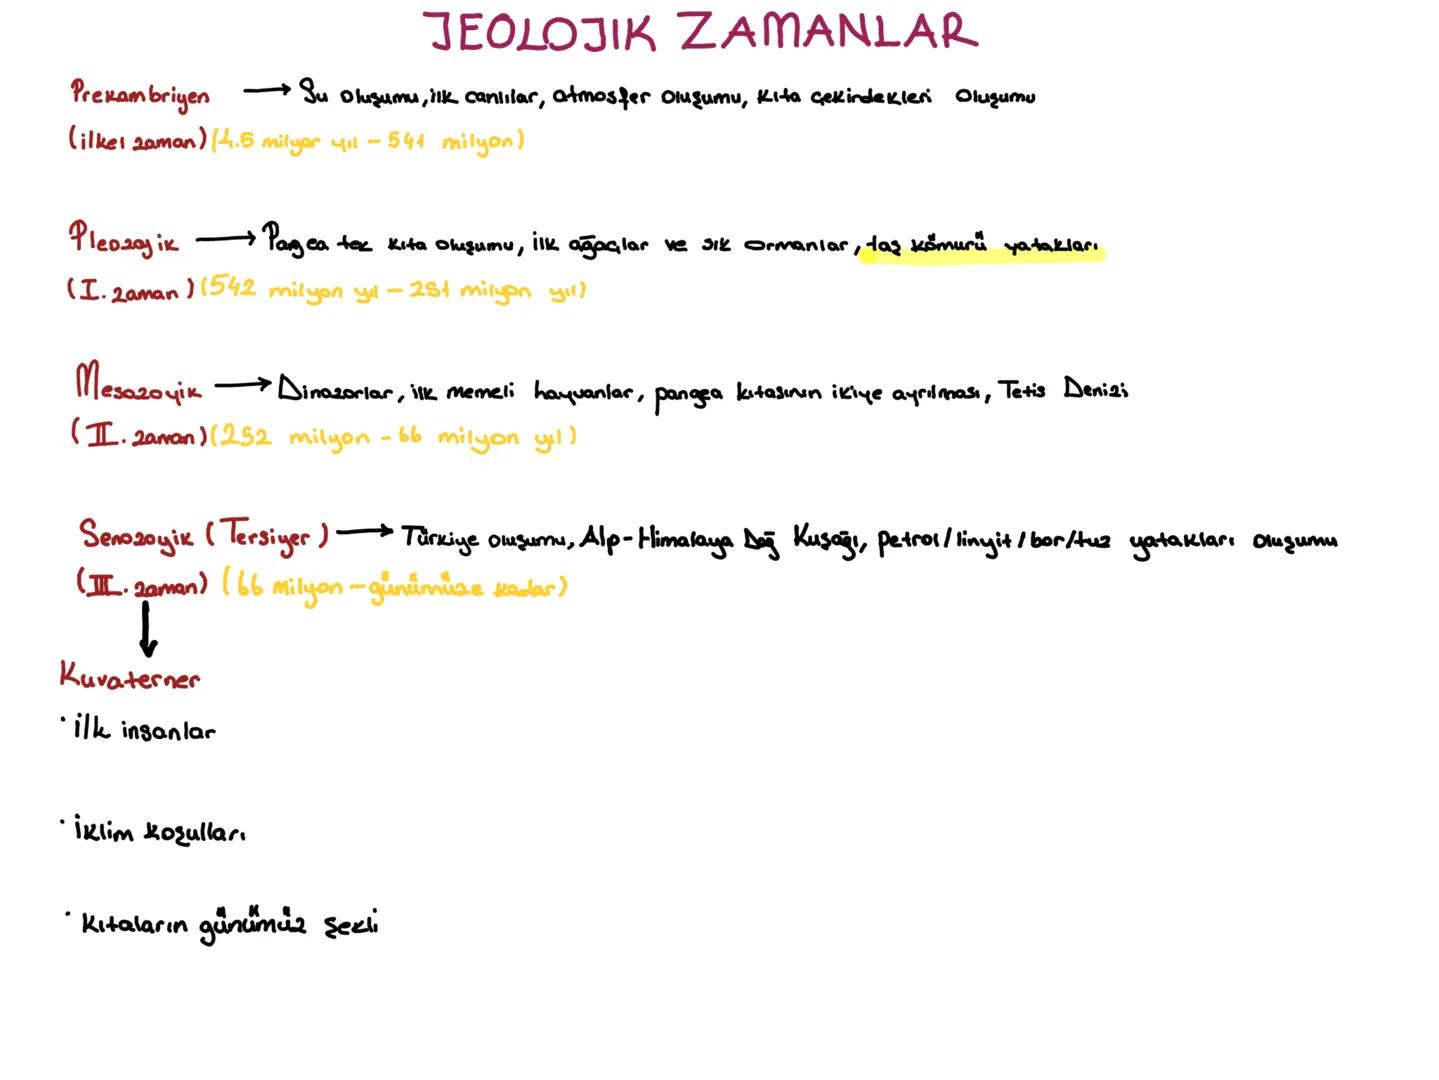 JEOLOJIK ZAMANLAR
Prekambriyen → Su oluşumu, ilk canlılar, atmosfer oluşumu, kıta çekirdekleri oluşumu
(ilkel zaman) (4.5 milyar yıl - 541 milyon)
Pleozoyik → Pangea tek kıta oluşumu, ilk ağaçlar ve sık ormanlar, taş kömürü yatakları
(I. zaman) (542 milyon yıl - 251 milyon yıl)
Mesozoyik → Dinazorlar, ilk memeli hayvanlar, pangea kıtasının ikiye ayrılması, Tetis Denizi
(II. zaman) (252 milyon - 66 milyon yıl)
Senozoyik (Tersiyer) → Türkiye oluşumu, Alp-Himalaya Dağ Kuşağı, petrol/linyit/bor/tuz yatakları oluşumu
(III. zaman) (66 Milyon - günümüze kadar)
Kuvaterner
· İlk insanlar
· İklim koşulları
· Kıtaların günümüz şekli